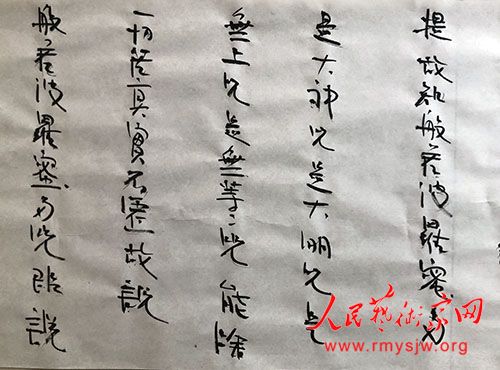 提故知般若波羅蜜多
是大神咒是大明咒是
無上咒是無等々咒能除
一切苦真實不虛故說
般若波羅蜜多咒即說
人民藝術家网
www.rmysjw.org